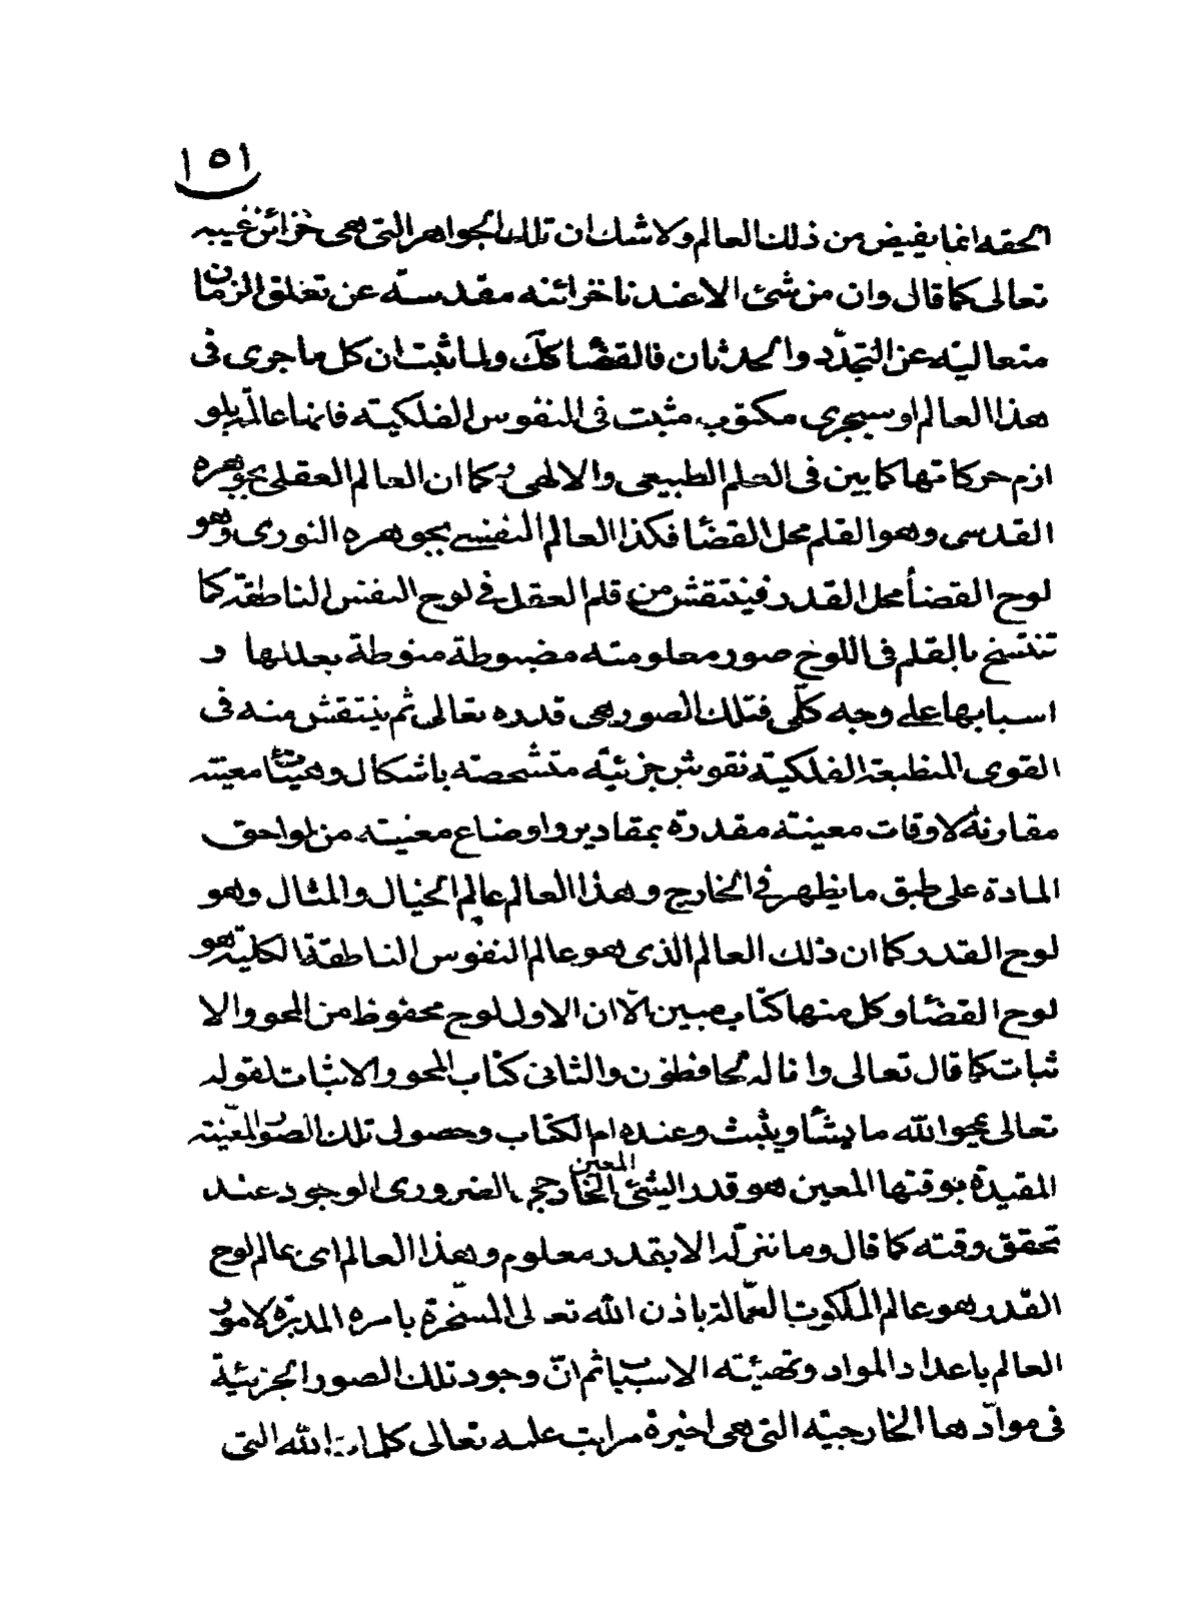 ١٥١
الحقه انما يفيض من ذلك العالم ولا شك ان تلك الجواهر التى هى خزائن غيبه
تعالى كما قال وان من شئ الا عندنا خزائنه مقدسة عن تعلق الزمان
متعاليته عن التجدّد والحدثان فالقضا كك ولما ثبت ان كل ما جرى فى
هذا العالم او سيجرى مكتوب مثبت فى النفوس الفلكيته فانها عالمة بلو
ازم حركاتها كما بين فى العلم الطبيعى والالهى فكما ان العالم العقلى بجوهره
القدسى وهو القلم محل القضا فكذا العالم النفسى بجوهره النورى وهو
لوح القضأ محل القدر فينتقش من قلم العقل فى لوح النفس الناطقة كما
تنتسخ بالقلم فى اللوح صور معلومته مضبوطة منوطة بعللها و
اسبابها على وجه كلّى فتلك الصور هى قدره تعالى ثم ينتقش منه فى
القوى المنطبعة الفلكيته نقوش جزئيّه متشخصته باشكال وهيئات معينه
مقارنة لاوقات معينته مقدرة بمقادير واوضاع معنيته من لواحق
المادة على طبق ما يظهر فى الخارج وهذا العالم عالم الخيال والمثال وهو
لوح القدر كما ان ذلك العالم الذى هو عالم النفوس الناطقة الكلية هو
لوح القضا وكل منها كتاب مبين الّا ان الاول لوح محفوظ من المحو والا
ثبات كما قال تعالى وانا له لحافظون والثانى كتاب المحو والاثبات لقوله
تعالى يمحوا الله ما يشأ ويثبت وعنده ام الكتاب وحصول تلك الصور المعّينته
المقيدة بوقتها المعين هو قدر الشئ المعين الخارجى الضرورى الوجود عند
تحقق وقته كما قال وما ننزله الا بقدر معلوم وهذا العالم اى عالم لوح
القدر هو عالم الملكوت العمّالة باذن الله تعالى المسخّرة بامره المدبّرة لامور
العالم باعداد المواد وتهيئته الاسباب ثم انّ وجود تلك الصور الجزئية
فى موادّها الخارجيّه التى هى اخيرة مراتب علمه تعالى كلمات الله التى